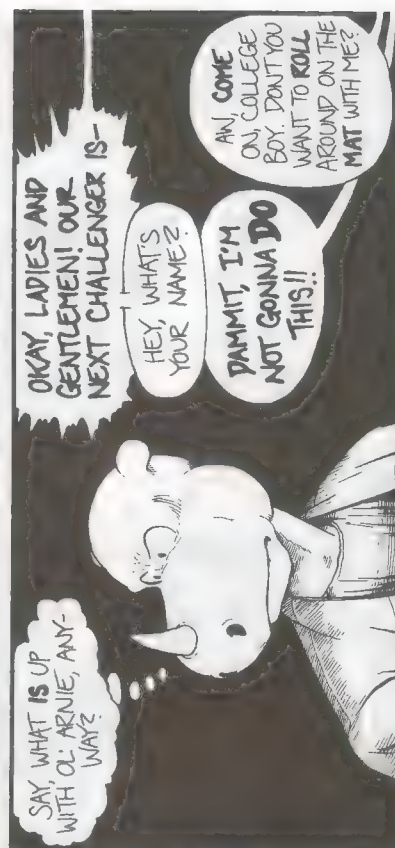 SAY, WHAT IS UP
WITH OL' ARNIE, ANY-
WAY?
OKAY, LADIES AND
GENTLEMEN! OUR
NEXT CHALLENGER IS-
HEY, WHAT'S
YOUR NAME?
DAMMIT, I'M
NOT GONNA DO
THIS!!
AW, COME
ON, COLLEGE
BOY. DON'T YOU
WANT TO ROLL
AROUND ON THE
MAT WITH ME?